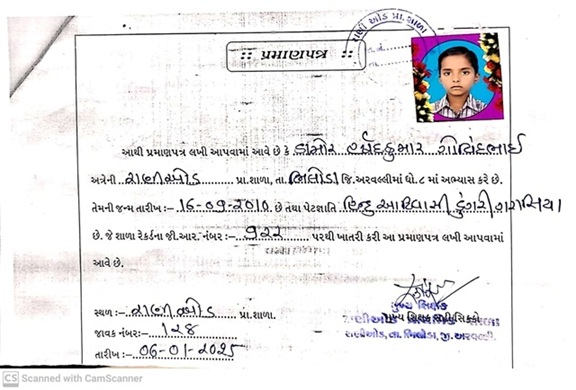 રાણીઓડ પ્રા.શાળા
:: પ્રમાણપત્ર ::
આથી પ્રમાણપત્ર લખી આપવામાં આવે છે કે ડામોર હર્ષદકુમાર ગોવિંદભાઈ
અત્રેની રાણીઓડ પ્રા.શાળા, તા. ભિલોડા જિ.અરવલ્લીમાં ધો. ૮ માં અભ્યાસ કરે છે.
તેમની જન્મ તારીખ :- 16-09-2010 છે તથા પેટાજાતિ હિન્દુ આદિવાસી ડુંગરી ગરાસિયા
છે. જે શાળા રેકર્ડના જી.આર. નંબર :- ૧૨૨ પરથી ખાતરી કરી આ પ્રમાણપત્ર લખી આપવામાં
આવે છે.
સ્થળ :- રાણીઓડ પ્રા.શાળા.
જાવક નંબર:- ૧૨૪
તારીખ :- 06-01-2025
મુખ્ય શિક્ષક
મુખ્ય શિક્ષક સહી/સિક્કો
રાણીઓડ, તા. ભિલોડા, જી. અરવલ્લી.
CS Scanned with CamScanner